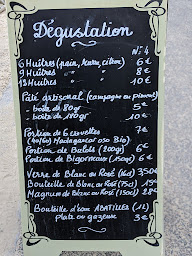 Dégustation
N°4
6 Huîtres (pain, beurre, citron) 6€
9 Huîtres " " 8€
12 Huîtres " " 10€
Pâté artisanal (campagne ou piment)
- boîte de 80gr 5€
- boîte de 180gr 10€
Portion de 6 crevettes 7€
(40/60 Madagascar oso Bio)
Portion de Bulots (200gr) 6€
Portion de Bigorneaux (150gr) 6€
Verre de Blanc ou Rosé (16cl) 3,50€
Bouteille de Blanc ou Rosé (75cl) 15€
Magnum de Blanc ou Rosé (150cl) 28€
Bouteille d'eau ABATILLES (1L)
plate ou gazeuse 3€